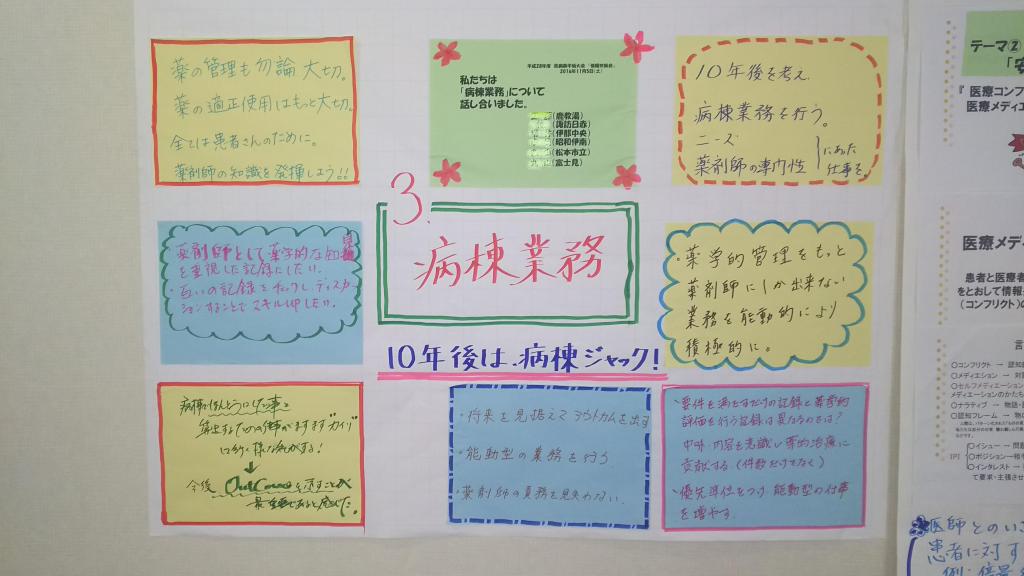 薬の管理も勿論 大切。
薬の適正使用はもっと大切。
全ては患者さんのために。
薬剤師の知識を発揮しよう!!
私たちは
「病棟業務」について
話し合いました。
(鹿教湯)
(諏訪日赤)
(伊那中央)
(昭和伊南)
(松本市立)
(富士見)
10年後を考え、
病棟業務を行う。
ニーズ
薬剤師の専門性
にあった
仕事を。
3.
病棟業務
10年後は、病棟ジャック!
薬剤師として薬学的な知識
を重視した記録にしたい。
・互いの記録をチェックし、ディスカッ
ションすることでスキルUPしたい。
・薬学的管理をもっと
薬剤師にしか出来ない
業務を能動的により
積極的に。
病棟でほんとうにした事と
今後 OutComeを
・将来を見据えてアウトカムを出す
・能動型の業務を行う
・薬剤師の責務を見失わない
・要件を満たすだけの記録と薬学的
評価を行う記録は異なるのでは?
中味・内容を意識し薬物治療に
貢献する(件数だけでなく)
・優先順位をつけ能動型の仕事
を増やす。
テーマ②
『医療コンフ
医療メディエ
医療メデ
患者と医療者
をとおして情報
(コンフリクト)の
言
○コンフリクト → 認知
○メディエーション → 対
○セルフメディエーション
メディエーションのかたち
○ナラティブ → 物語・
○認知フレーム → 物
IPI
○イシュー → 問題
○ポジション→相手
○インタレスト →
て要求・主張させ
医師とのいざ
患者に対す